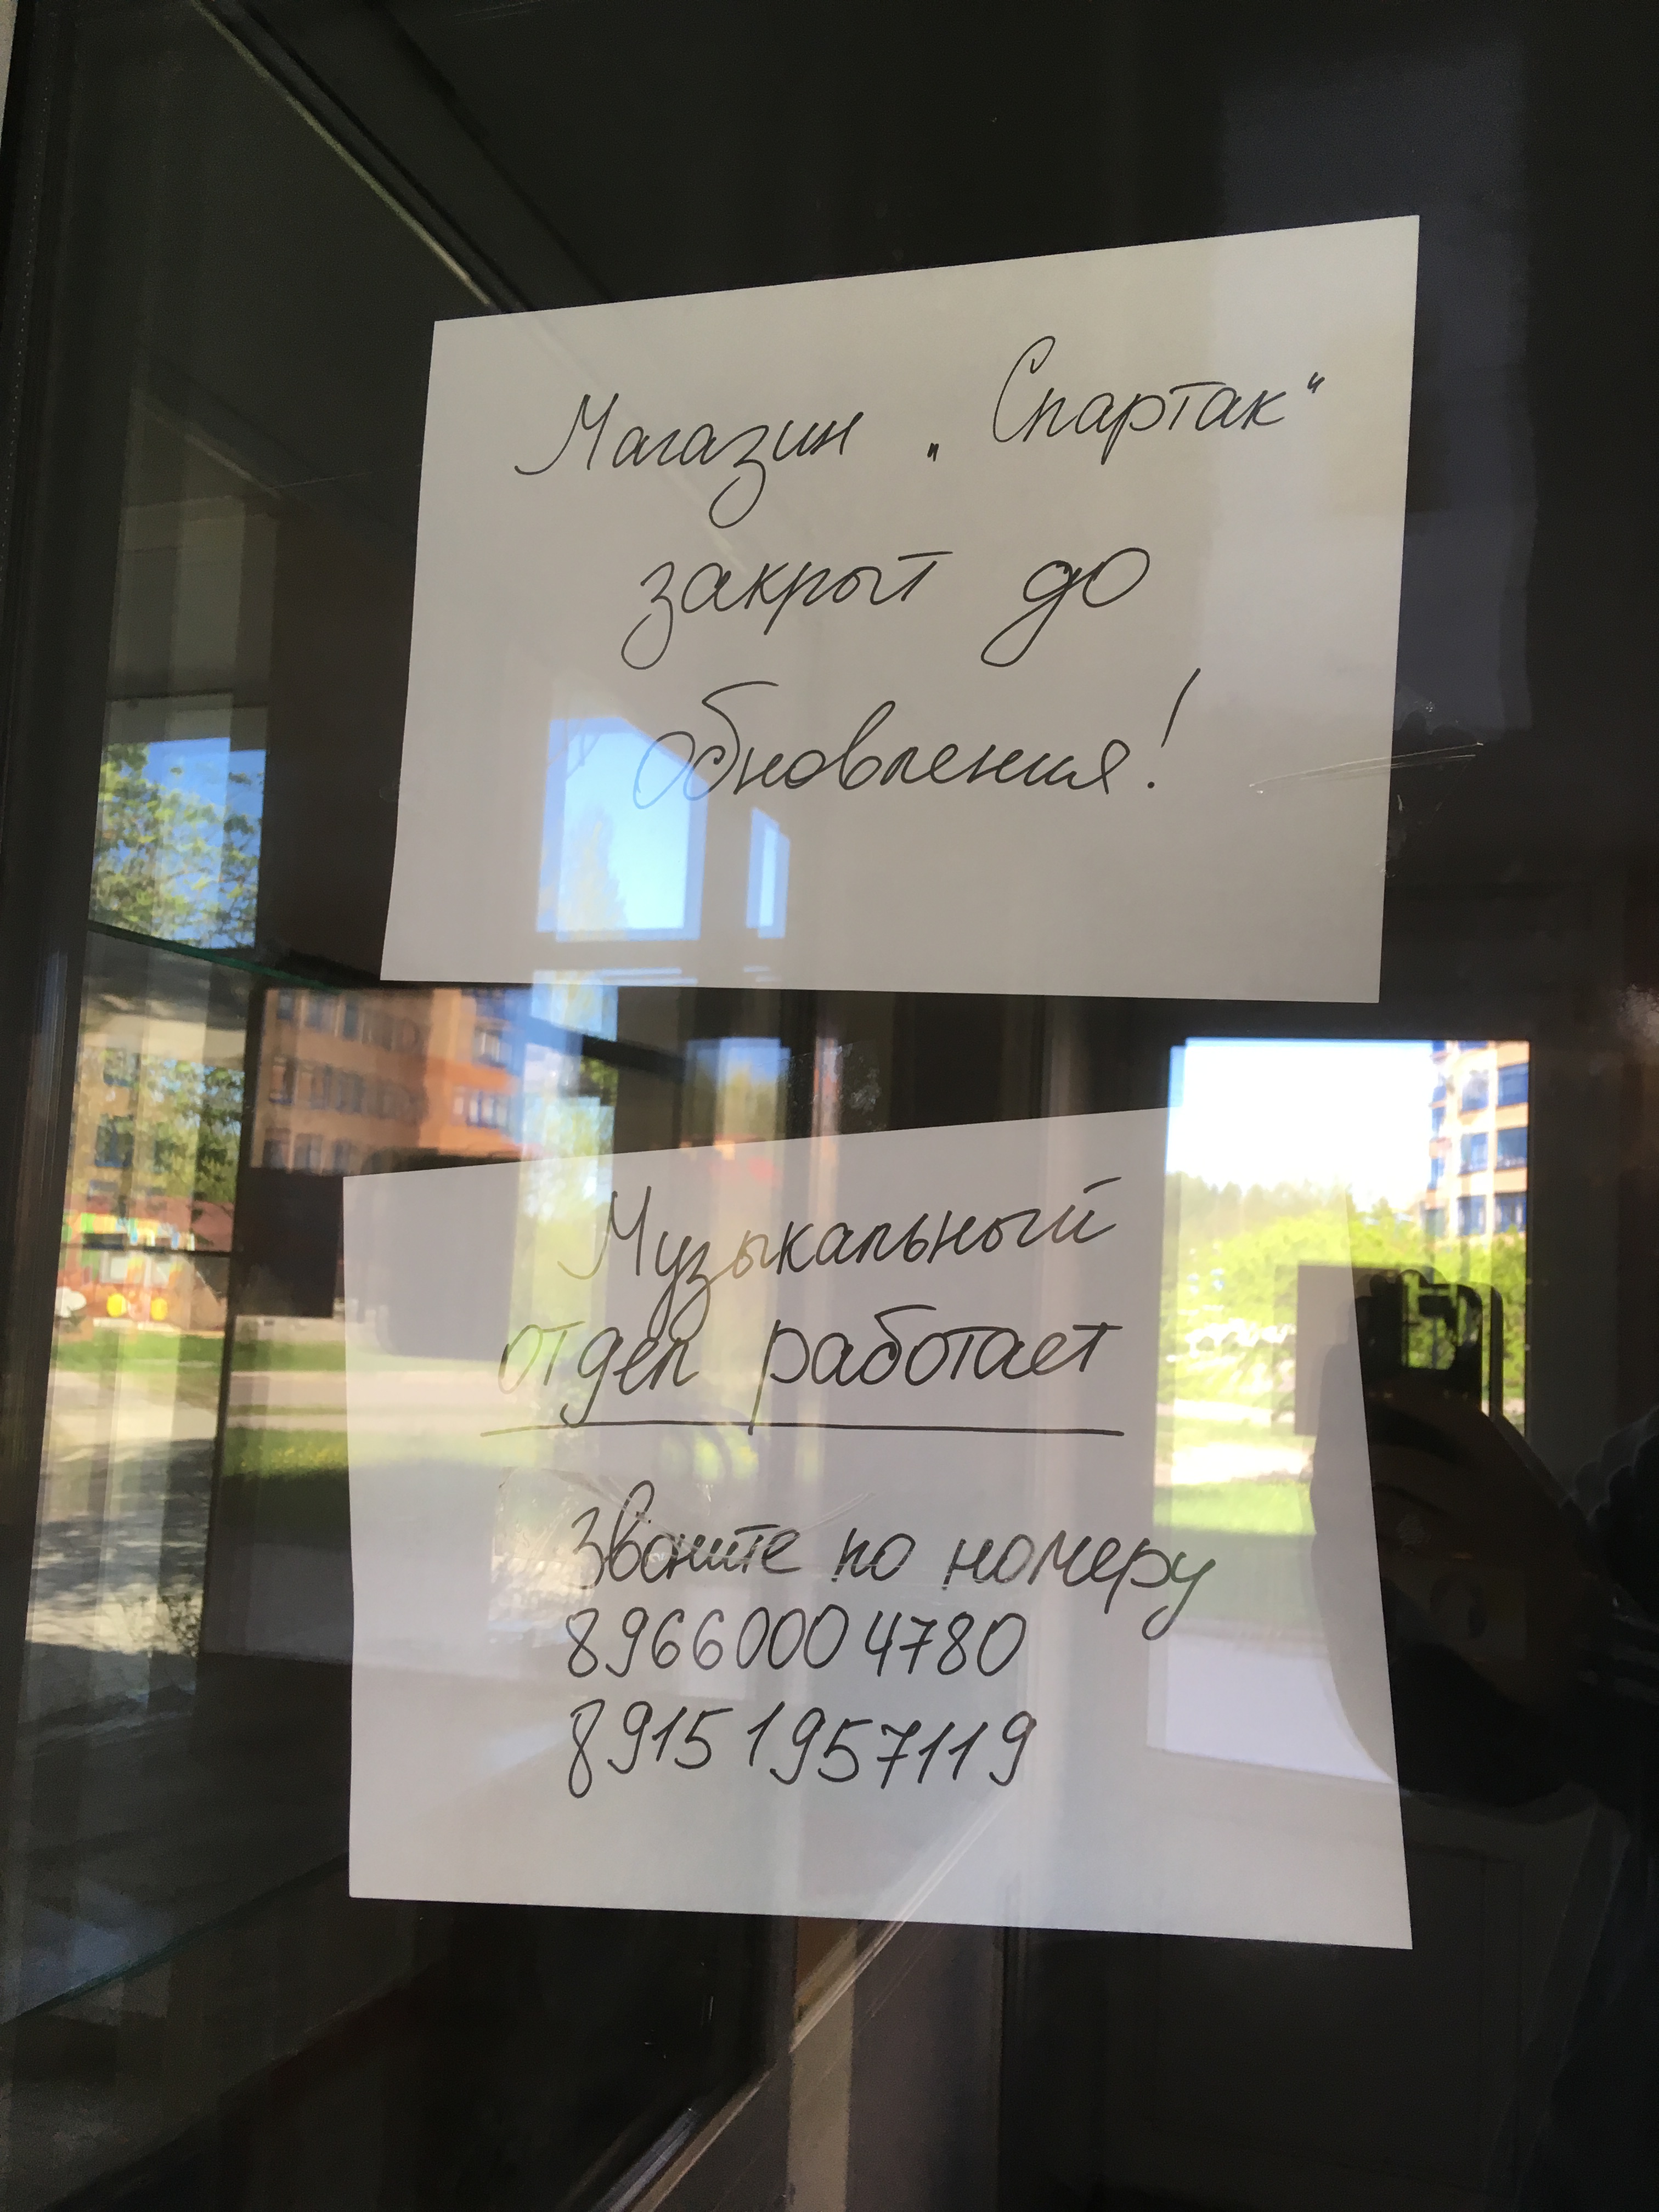 Магазин „Спартак“
закрыт до
обновления!
Музыкальный
отдел работает
Звоните по номеру
89660004780
89151957119